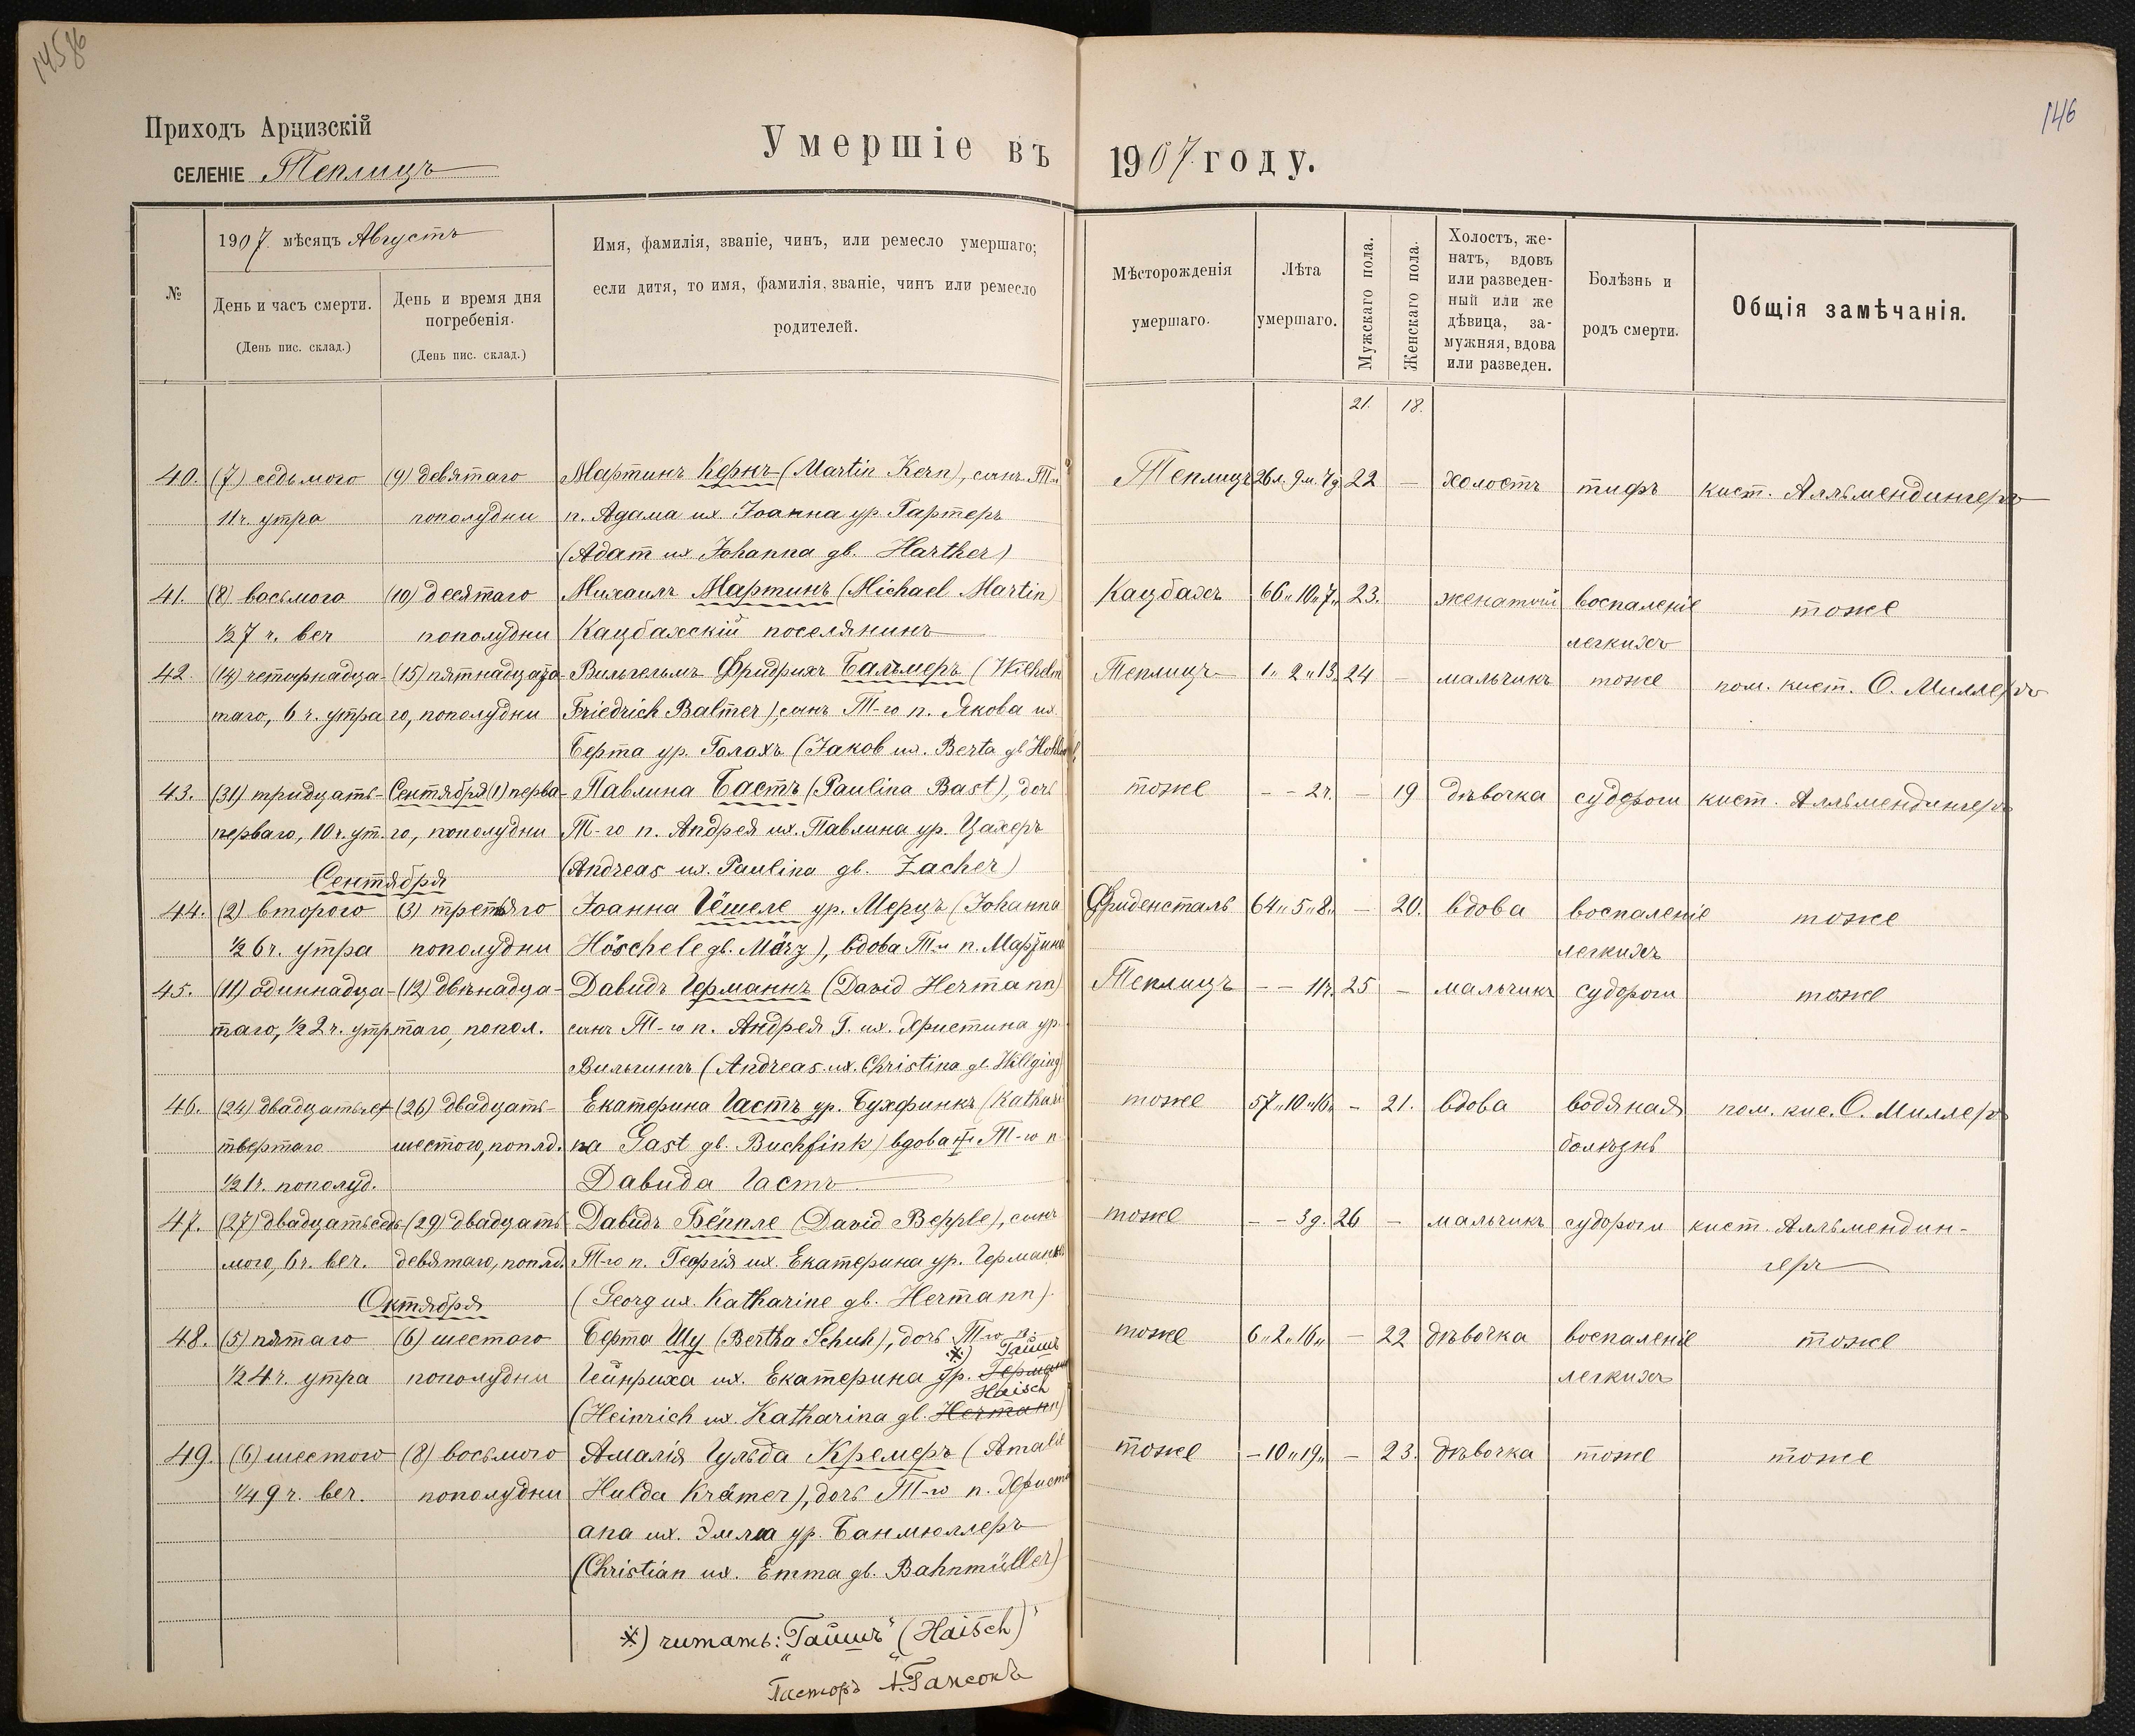 14586
146
Приходъ Арцизскій
СЕЛЕНІЕ Теплицъ
Умершіе въ 1907 году.
№
1907. мѣсяцъ Августъ
День и часъ смерти.
(День пис. склад.)
День и время дня
погребенія.
(День пис. склад.)
Имя, фамилія, званіе, чинъ, или ремесло умершаго;
если дитя, то имя, фамилія, званіе, чинъ или ремесло
родителей.
Мѣсторожденія
умершаго.
Лѣта
умершаго.
Мужскаго пола.
Женскаго пола.
Холостъ, же-
натъ, вдовъ
или разведен-
ный или же
дѣвица, за-
мужняя, вдова
или разведен.
Болѣзнь и
родъ смерти.
Общія замѣчанія.
21. 18.
40. (7) седьмого (9) девятаго Мартинъ Кернъ (Martin Kern), сынъ Т-го Теплицъ 26 л. 9 м. 7 д. 22 — холостъ тифъ кист. Алльмендингеръ
11 ч. утра пополудни п. Адама их. Іоанна ур. Гартеръ
(Адат их Johanna gb. Harther)
41. (8) восьмого (10) десятаго Михаилъ Мартинъ (Michael Martin) Кацбахъ 66 " 10 " 7 " 23. женатый воспаленіе тоже
½ 7 ч. веч пополудни Кацбахскій поселянинъ легкихъ
42. (14) четырнадца- (15) пятнадцата- Вильгельмъ Фридрихъ Бальмеръ (Wilhelm Теплицъ 1 " 2 " 13 " 24 — мальчикъ тоже пом. кист. О. Миллеръ
таго, 6 ч. утра го, пополудни Friedrich Balmer), сынъ Т-го п. Якова их.
Берта ур. Голахъ (Jakob их. Berta gb
43. (31) тридцать- Сентября (1) перва- Павлина Бастъ (Paulina Bast), дочь тоже — — 2 ч. — 19 дѣвочка судороги кист. Алльмендингеръ
перваго, 10 ч. ут. го, пополудни Т-го п. Андрея их. Павлина ур. Цахеръ
(Andreas их. Paulina gb. Zacher)
Сентября
44. (2) второго (3) третьяго Іоанна Гёшеле ур. Мерцъ (Johanna Фриденсталь 64 " 5 " 8 " — 20. вдова воспаленіе тоже
½ 6 ч. утра пополудни Höschele gb. März), вдова Т-го п. Мартина легкихъ
45. (11) одиннадца- (12) двѣнадца- Давидъ Германнъ (David Hermann) Теплицъ — — 11 ч. 25 — мальчикъ судороги тоже
таго, ½ 2 ч. утр таго, попол. сынъ Т-го п. Андрея Г. их. Христина ур.
Вильгингъ (Andreas их. Christina gb. Willging)
46. (24) двадцать че- (26) двадцать- Екатерина Гастъ ур. Бухфинкъ (Kathari тоже 57 " 10 " 16 " — 21. вдова водяная пом. кис. О. Миллеръ
твертаго шестого, поплд. na Gast gb. Buchfink) вдова Т-го п. болѣзнь
½ 1 ч. пополуд. Давида Гастъ
47. (27) двадцать седь- (29) двадцать Давидъ Бёппле (David Bepple), сынъ тоже — — 3 д. 26 — мальчикъ судороги кист. Алльмендин-
мого, 6 ч. веч. девятаго, поплд. Т-го п. Георгія их. Екатерина ур. Германнъ геръ
Октября (Georg их. Katharine gb. Hermann).
48. (5) пятаго (6) шестого Берта Шу (Bertha Schuh), дочь Т-го п. тоже 6 " 2 " 16 " — 22 дѣвочка воспаленіе тоже
⁎) Гайшъ
½ 4 ч. утра пополудни Гейнриха их. Екатерина ур. Германн легкихъ
Haisch
(Heinrich их. Katharina gb. Hermann)
49. (6) шестого (8) восьмого Амалія Гульда Кремеръ (Amalie тоже — 10 " 19 " — 23. дѣвочка тоже тоже
¼ 9 ч. веч. пополудни Hulda Krämer), дочь Т-го п. Христі
ана их. Эмма ур. Банмюллеръ
(Christian их. Emma gb. Bahnmüller)
⁎) читать: „Гайшъ" (Haisch)
Пасторъ А. Гансонъ